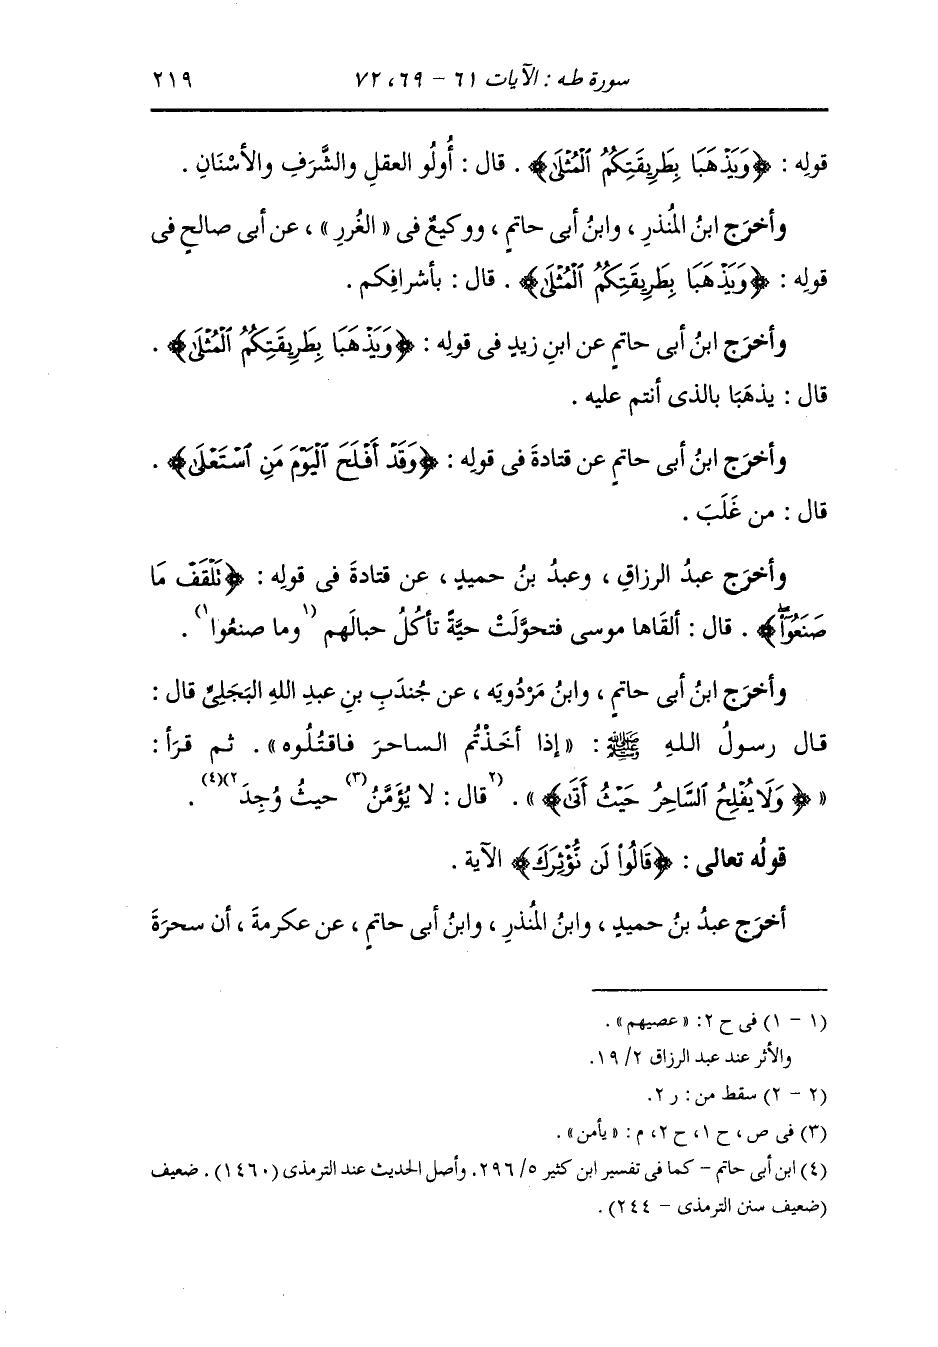 سورة طه : الآيات ٦١ - ٦٩، ٧٢ ٢١٩
قولِه : ﴿وَيَذْهَبَا بِطَرِيقَتِكُمُ ٱلْمُثْلَىٰ﴾ . قال : أُولُو العقلِ والشَّرَفِ والأسْنَانِ .
وأخرَج ابنُ المُنذرِ ، وابنُ أبى حاتمٍ ، ووكيعٌ فى « الغُررِ » ، عن أبى صالحٍ فى
قولِه : ﴿وَيَذْهَبَا بِطَرِيقَتِكُمُ ٱلْمُثْلَىٰ﴾ . قال : بأشرافِكم .
وأخرَج ابنُ أبى حاتمٍ عن ابنِ زيدٍ فى قولِه : ﴿وَيَذْهَبَا بِطَرِيقَتِكُمُ ٱلْمُثْلَىٰ﴾ .
قال : يذهَبَا بالذى أنتم عليه .
وأخرَج ابنُ أبى حاتمٍ عن قتادةَ فى قولِه : ﴿وَقَدْ أَفْلَحَ ٱلْيَوْمَ مَنِ ٱسْتَعْلَىٰ﴾ .
قال : من غَلَبَ .
وأخرَج عبدُ الرزاقِ ، وعبدُ بنُ حميدٍ ، عن قتادةَ فى قولِه : ﴿تَلْقَفْ مَا
صَنَعُوٓا۟ۖ﴾ . قال : ألقَاها موسى فتحوَّلَتْ حيَّةً تأكُلُ حبالَهم (١وما صنعُوا١) .
وأخرَج ابنُ أبى حاتمٍ ، وابنُ مَرْدُويَه ، عن جُندَبِ بنِ عبدِ اللهِ البَجَلِىِّ قال :
قال رسولُ اللهِ ﷺ : «إذا أخَذْتُم الساحرَ فاقتُلُوه» . ثم قرَأ :
« ﴿وَلَا يُفْلِحُ ٱلسَّاحِرُ حَيْثُ أَتَىٰ﴾ » . (٢قال : لا يُؤَمَّنُ(٣) حيثُ وُجِدَ٢)(٤) .
قولُه تعالى : ﴿قَالُوا۟ لَن نُّؤْثِرَكَ﴾ الآية .
أخرَج عبدُ بنُ حميدٍ ، وابنُ المُنذرِ ، وابنُ أبى حاتمٍ ، عن عكرمةَ ، أن سحرَةَ
(١ - ١) فى ح ٢: « عصيهم» .
والأثر عند عبد الرزاق ٢/ ١٩.
(٢ - ٢) سقط من : ر ٢.
(٣) فى ص ، ح ١، ح ٢، م : « يأمن» .
(٤) ابن أبى حاتم - كما فى تفسير ابن كثير ٥/ ٢٩٦. وأصل الحديث عند الترمذى (١٤٦٠) . ضعيف
(ضعيف سنن الترمذى - ٢٤٤) .